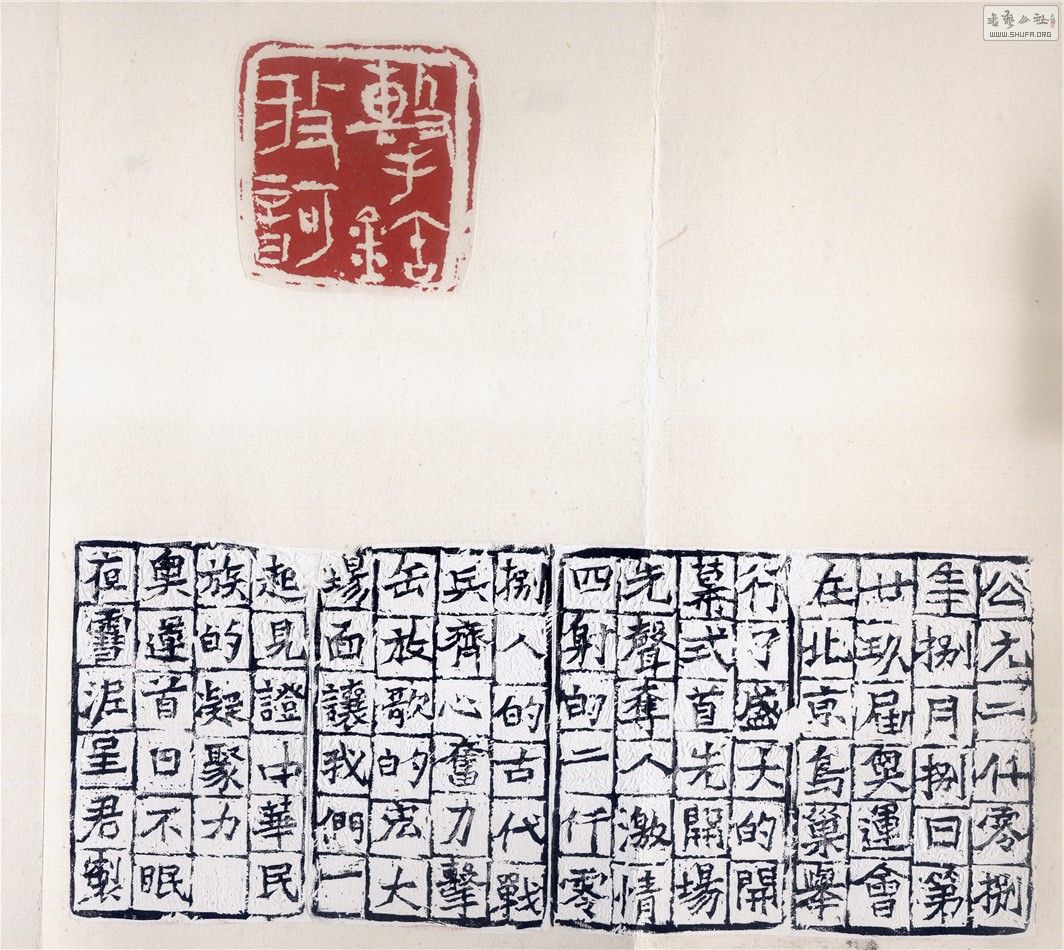 書藝公社
WWW.SHUFA.ORG
擊缶
放歌
公元二仟零捌
年捌月捌日第
廿玖屆奧運會
在北京鳥巢舉
行了盛大的開
幕式首先開場
先聲奪人激情
四射的二仟零
捌人的古代戰
兵齊心奮力擊
缶放歌的宏大
場面讓我們一
起見證中華民
族的凝聚力
奧運首日不眠
夜雪泥呈君製